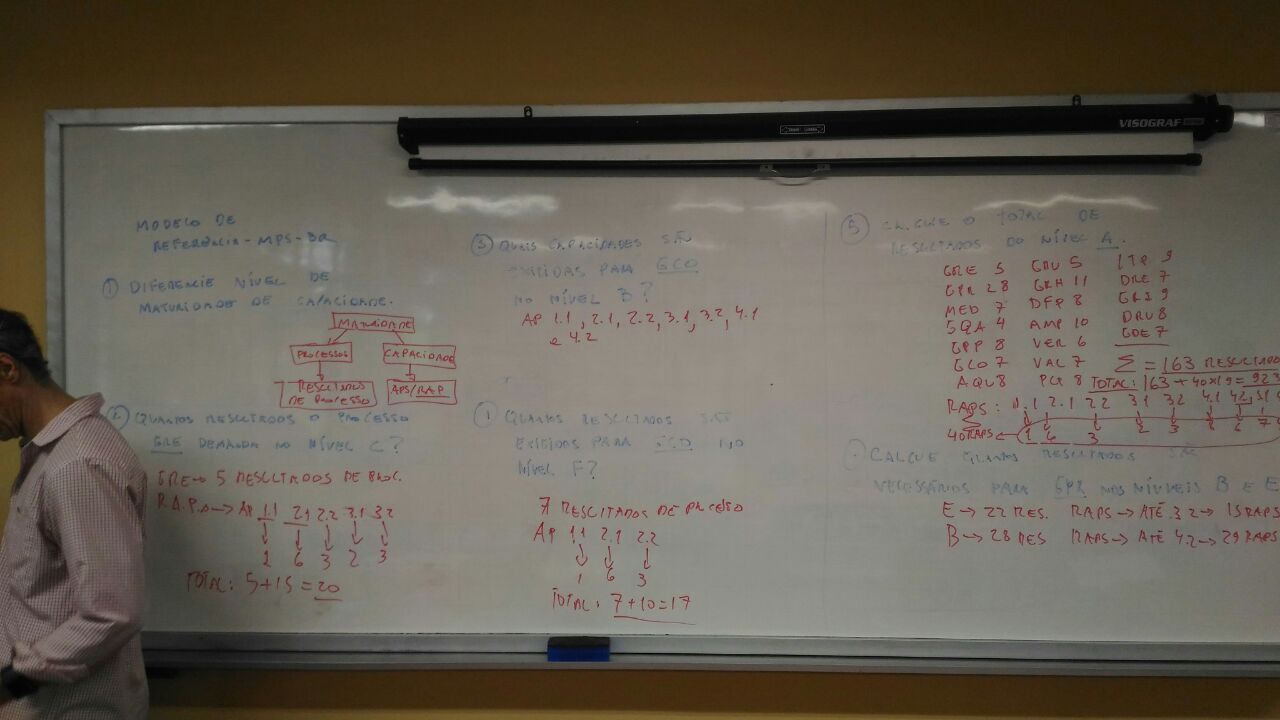 VISOGRAF
MODELO DE
REFERÊNCIA - MPS-BR
① DIFERENCIE NÍVEL DE
MATURIDADE DE CAPACIDADE.
MATURIDADE
PROCESSOS CAPACIDADE
RESULTADOS DE PROCESSO APS/RAP
② QUANTOS RESULTADOS O PROCESSO
GRE DEMANDA NO NÍVEL C?
GRE → 5 RESULTADOS DE
→ AP 1.1 2.1 2.2 3.1 3.2
1 6 3 2 3
TOTAL: 5+15=20
③ QUAIS CAPACIDADES SÃO
EXIGIDAS PARA GCO
NO NÍVEL B?
AP 1.1, 2.1, 2.2, 3.1, 3.2, 4.1
e 4.2
QUANTOS RESULTADOS SÃO
EXIGIDOS PARA NO
NÍVEL F?
7 RESULTADOS DE PROCESSO
AP 1.1 2.1 2.2
1 6 3
TOTAL: 7+10=17
⑤ CALCULE O TOTAL DE
RESULTADOS DO NÍVEL A.
GRE 5 GRU 5 ITP 9
GPR 28 GRH 11 DRE 7
MED 7 DFP 8 GRI 9
SQA 4 AMP 10 DRU 8
GPP 8 VER 6 GDE 7
GCO 7 VAL 7 Σ = 163 RESULTADO
AQU 8 PCP 8 TOTAL: 163 + 40x19 = 923
RAPS: 1.1 2.1 2.2 3.1 3.2 4.1 4.2
Σ
40 RAPS ← 1 6 3 2 3
CALCULE QUANTOS RESULTADOS SÃO
NECESSÁRIOS PARA GPR NOS NÍVEIS B e E
E → 22 RES. RAPS → ATÉ 3.2 → 15 RAPS
B → 28 RES RAPS → ATÉ 4.2 → 29 RAPS